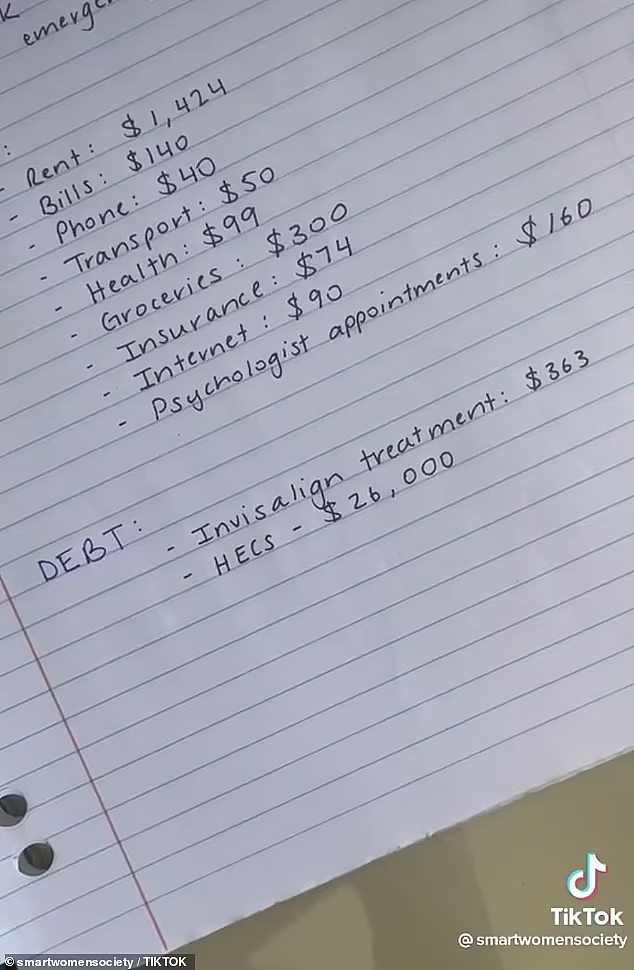 emerge
:
- Rent: $1,424
- Bills: $140
- Phone: $40
- Transport: $50
- Health: $99
- Groceries: $300
- Insurance: $74
- Internet: $90
- Psychologist appointments: $160
DEBT:
- Invisalign treatment: $363
- HECS - $26,000
TikTok
@smartwomensociety
©smartwomensociety / TIKTOK